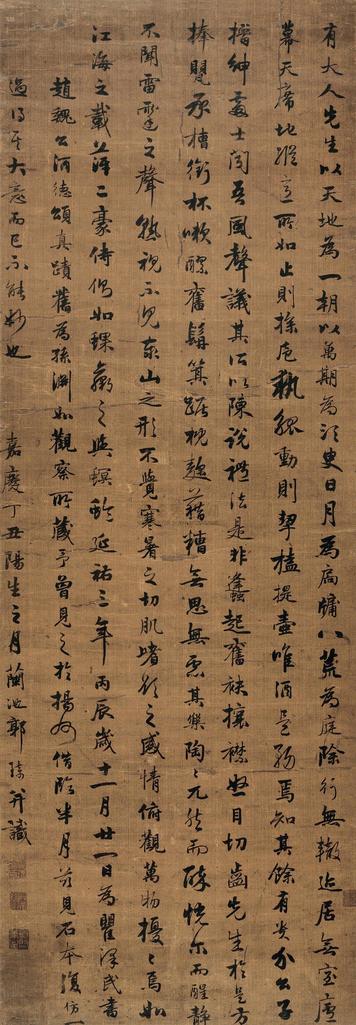 有大人先生以天地為一朝以萬期為須史日月為扃牖八荒為庭除行無轍迹居無室廬
幕天席地縱意所如止則操卮執瓢動則挈榼提壺唯酒是務焉知其餘有貴介公子
搢紳處士聞吾風聲議其所以陳說禮法是非蠭起奮袂攘襟怒目切齒先生於是方
捧甖承槽銜杯嗽醪奮髯箕踞枕麴藉糟無思無慮其樂陶〻兀然而醉恍尔而醒靜
不聞雷霆之聲熟視不見泰山之形不覺寒暑之切肌嗜欲之感情俯觀萬物擾〻焉如
江海之載萍二豪侍側如蜾蠃之與螟蛉延祐三年丙辰歲十一月廿一日為瞿澤民書
趙魏公酒德頌真蹟舊為孫淵如觀察所藏予曾見之於揚州借臨半月茲見石本復仿一
過得其大意而已不能妙也 嘉慶丁丑陽生之月蘭池郭 并識